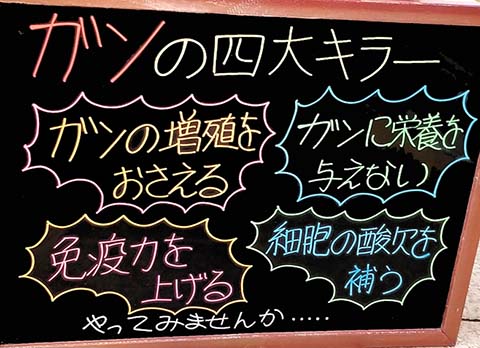 ガンの四大キラー
ガンの増殖を
おさえる
ガンに栄養を
与えない
免疫力を
上げる
細胞の酸欠を
補う
やってみませんか・・・・・